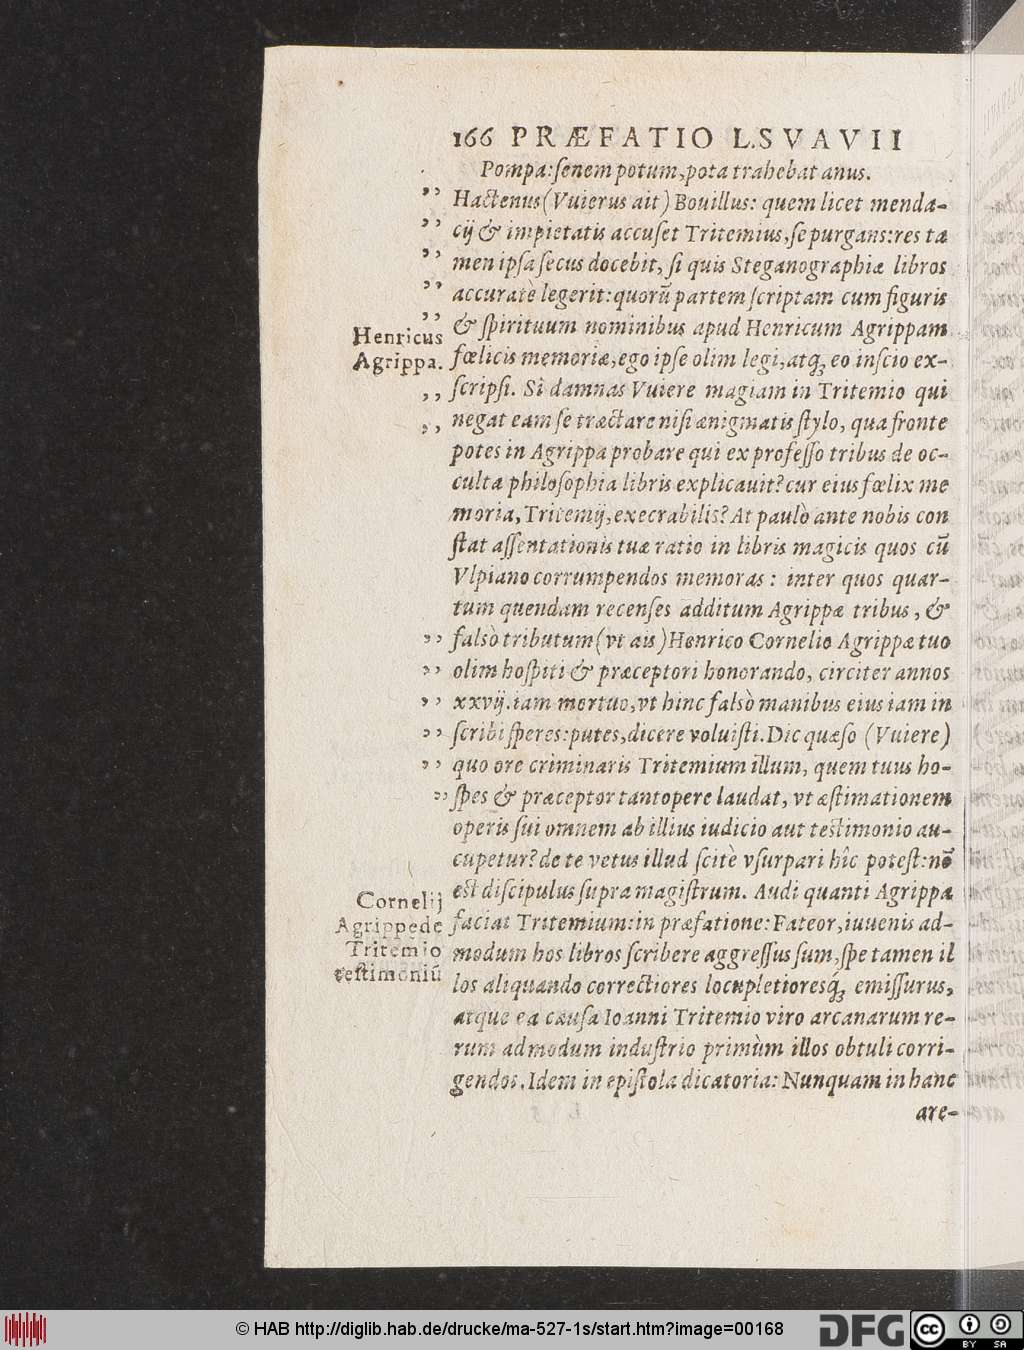 166 PRÆFATIO L. SVAVII
Pompa: ſenem potum, pota trahebat anus.
Hactenus (Vuierus ait) Bouillus: quem licet menda-
cij & impietatis accuſet Tritemius, ſe purgans: res ta
men ipſa ſecus docebit, ſi quis Steganographiæ libros
accuratè legerit: quorũ partem ſcriptam cum figuris
& ſpirituum nominibus apud Henricum Agrippam
fœlicis memoriæ, ego ipſe olim legi, atq; eo inſcio ex-
ſcripſi. Si damnas Vuiere magiam in Tritemio qui
negat eam ſe tractare niſi ænigmatis ſtylo, qua fronte
potes in Agrippa probare qui ex profeſſo tribus de oc-
culta philoſophia libris explicauit? cur eius fœlix me
moria, Tritemij, execrabilis? At paulò ante nobis con
ſtat aſſentationis tuæ ratio in libris magicis quos cũ
Vlpiano corrumpendos memoras: inter quos quar-
tum quendam recenſes additum Agrippæ tribus, &
falsò tributum (vt ais) Henrico Cornelio Agrippæ tuo
olim hoſpiti & præceptori honorando, circiter annos
xxvij. iam mortuo, vt hinc falsò manibus eius iam in
ſcribi ſperes: putes, dicere voluiſti. Dic quæſo (Vuiere)
quo ore criminaris Tritemium illum, quem tuus ho-
ſpes & præceptor tantopere laudat, vt æſtimationem
operis ſui omnem ab illius iudicio aut teſtimonio au-
cupetur? de te vetus illud ſcitè vſurpari hîc poteſt: nõ
eſt diſcipulus ſupra magiſtrum. Audi quanti Agrippa
faciat Tritemium: in præfatione: Fateor, iuuenis ad-
modum hos libros ſcribere aggreſſus ſum, ſpe tamen il
los aliquando correctiores locupletioresq́; emiſſurus,
atque ea cauſa Ioanni Tritemio viro arcanarum re-
rum admodum induſtrio primùm illos obtuli corri-
gendos. Idem in epiſtola dicatoria: Nunquam in hanc
are-
Henricus
Agrippa.
Cornelij
Agrippe de
Tritemio
teſtimoniũ
© HAB http://diglib.hab.de/drucke/ma-527-1s/start.htm?image=00168
DFG
cc
BY SA